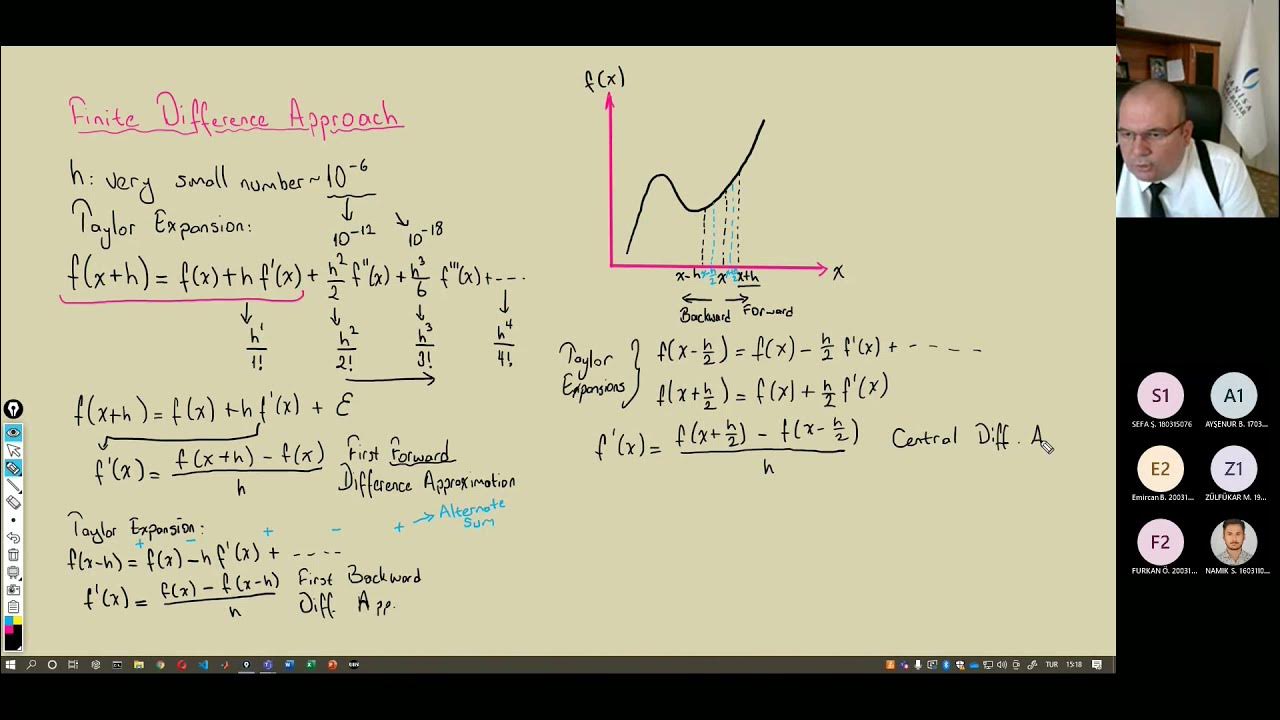 Finite Difference Approach
h: very small number ~ 10⁻⁶
10⁻¹² 10⁻¹⁸
Taylor Expansion:
f(x+h) = f(x) + h f'(x) + h²/2 f''(x) + h³/6 f'''(x) + ----
h¹/1! h²/2! h³/3! h⁴/4!
f(x+h) = f(x) + h f'(x) + ε
f'(x) = (f(x+h) - f(x))/h First Forward
Difference Approximation
Taylor Expansion:
+ - + - + → Alternate
Sum
f(x-h) = f(x) - h f'(x) + ----
f'(x) = (f(x) - f(x-h))/h First Backward
Diff. App.
f(x)
x-h x-h/2 x x+h/2 x+h x
Backward Forward
Taylor
Expansions
f(x-h/2) = f(x) - h/2 f'(x) + - - - -
f(x+h/2) = f(x) + h/2 f'(x)
f'(x) = (f(x+h/2) - f(x-h/2))/h Central Diff. A
S1 A1
SEFA Ş. 180315076 AYŞENUR B. 1703...
E2 Z1
Emircan B. 20031... ZÜLFÜKAR M. 19...
F2
FURKAN Ö. 20031... NAMIK S. 1603110...
TUR 15:18